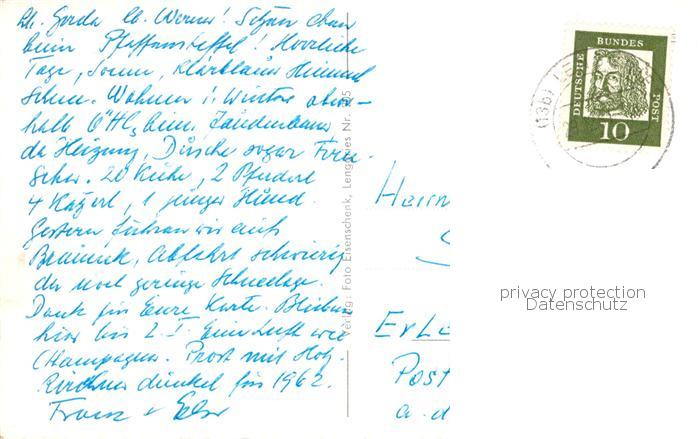 Lb. Gerda lb. Werner! Sitzen oben
beim ! Herrliche
Tage, Sonne, Himmel
Schnee. Wohnen i. Winter ober-
halb beim
da Heizung, Dusche sogar
20 Kühe, 2 Pferderl
4 Katzerl, 1 junger Hund.
Gestern fuhren wir aufs
Brauneck, Abfahrt schwierig
da noch geringe Schneelage.
Dank für Eure Karte. Bleiben
hier bis 2.I. Eine Luft wie
Champagner. Prost mit Holz-
kirchner dunkel für 1962.
Franz +
Verlag: Foto Eisenschenk, Lenggries Nr.
DEUTSCHE BUNDES POST
10
(13b) LE
Herrn
Erla
Post
a.d
privacy protection
Datenschutz